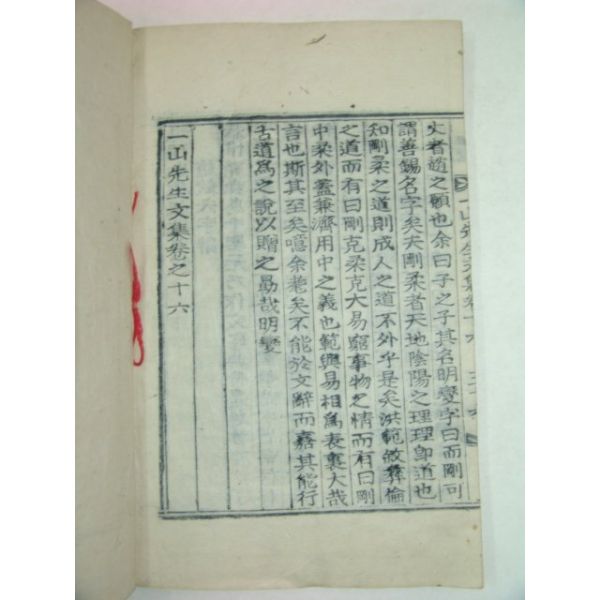 丈者造之願也余曰子之子其名明燮字曰而剛可
謂善錫名字矣夫剛柔者天地陰陽之理理卽道也
知剛柔之道則成人之道不外乎是矣洪範敘彝倫
之道而有曰剛克柔克大易窮事物之情而有曰剛
中柔外蓋兼濟用中之義也範與易相爲表裏大哉
言也斯其至矣噫余老矣不能於文辭而嘉其能行
古道爲之說以贈之勗哉明燮
一山先生文集卷之十六